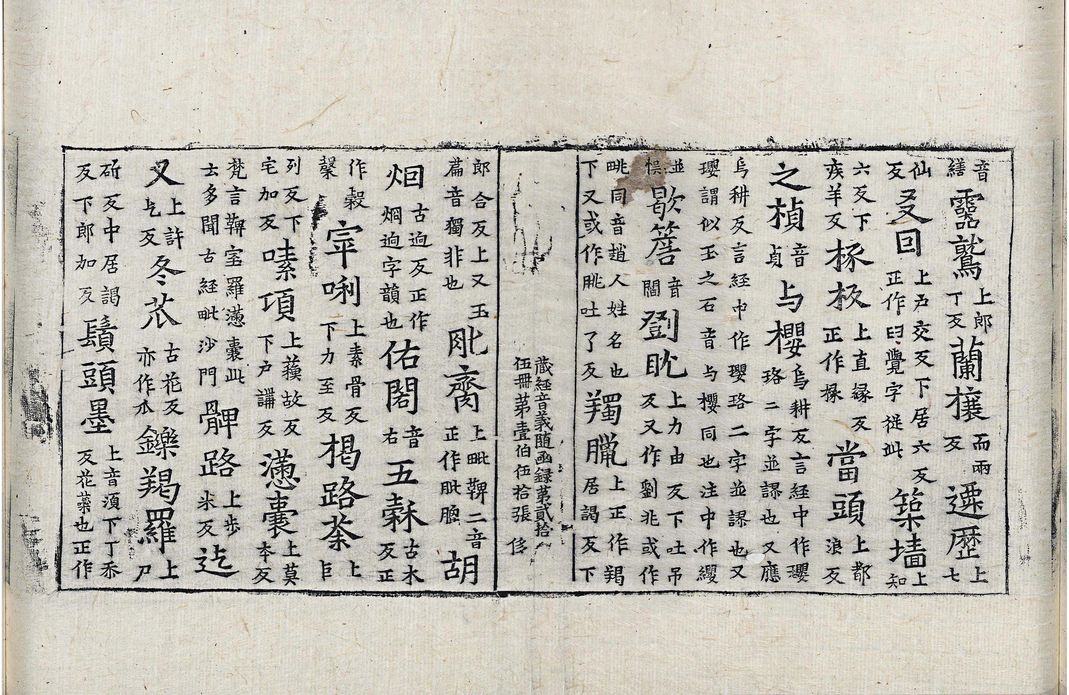 音繕靈鷲上郎丁反蘭欀而兩反遝歷上七
仙反叐囙上戶交反下居六反正作臼覺字從此築墻上知
六反下疾羊反椓板上直縁反正作椽當頭上都浪反
之楨音貞与櫻烏耕反言經中作瓔珞二字並謬也又應
烏耕反言經巾作瓔珞二字並謬也又瓔謂似玉之石音与櫻同也注中作纓
並悮歇簦音閻劉眈上力由反下吐吊反又作劉兆或作
眺同音趙人姓名也下又或作眺吐了反羯臘上正作羯居謁反下
藏經音義隨函録第貳拾
伍冊第壹伯伍拾張 修
郎合反上又玉篇音獨非也膍齊上毗鞞二音正作毗臍胡
烟古迥反正作烱迥字韻也佑閣音右五糓古木反正
作穀縠宰唎上素骨反下力至反楬路荼上巨
列反下宅加反嗉項上蘓故反下户講反懣囊上莫本反
梵言鞞室羅懣囊此云多聞古經毗沙門髀路上步米反迄
又上許乞反冬苽古花反亦作瓜鑠羯羅上尸
斫反中居謁反下郎加反鬚頭墨上音須下丁禾反花蘂也正作